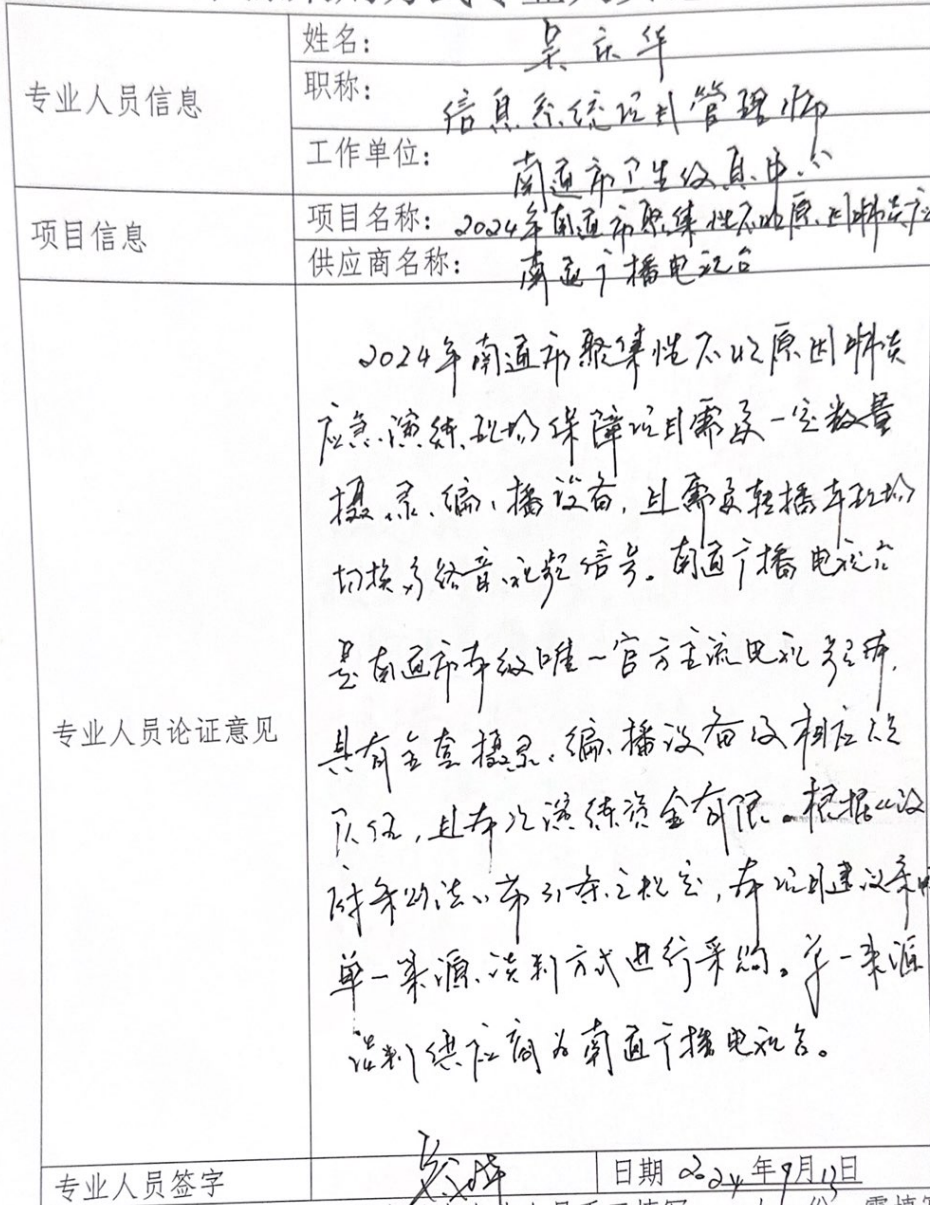 专业人员信息
姓名： 吴庆华
职称： 信息系统项目管理师
工作单位： 南通市卫生信息中心
项目信息
项目名称： 2024年南通市聚集性不明原因肺炎应
供应商名称： 南通广播电视台
2024年南通市聚集性不明原因肺炎
应急演练现场保障项目需要一定数量
摄、录、编、播设备，且需要转播车现场
切换多路音、视频信号。南通广播电视台
是南通市本级唯一官方主流电视媒体，
具有全套摄录、编、播设备及相应
队伍，且本次演练资金有限。根据《政
府采购法》第31条之规定，本项目建议采用
单一来源谈判方式进行采购。单一来源
谈判供应商为南通广播电视台。
专业人员论证意见
专业人员签字
日期 2024年9月13日